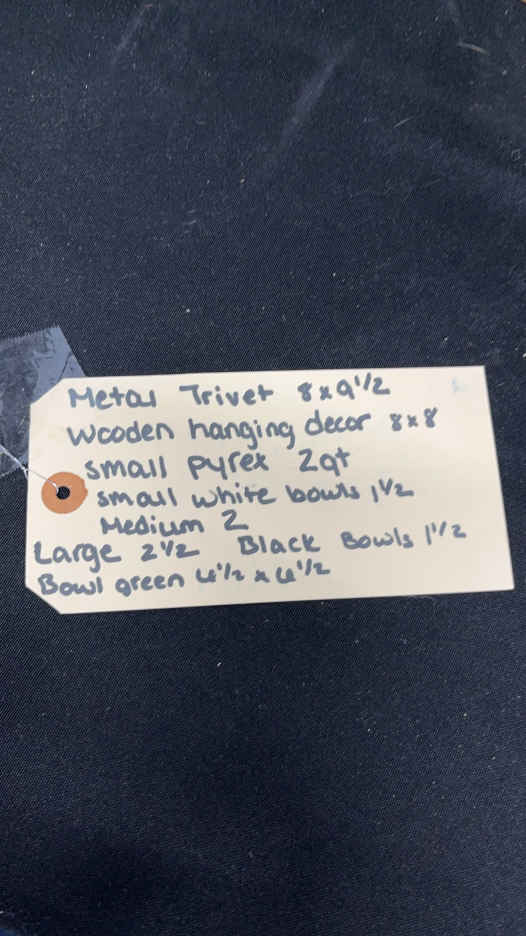 Metal Trivet 8x9 1/2
Wooden hanging decor 8x8
small pyrex 2qt
small white bowls 1 1/2
Medium 2
Large 2 1/2 Black Bowls 1 1/2
Bowl green 4 1/2 x 4 1/2